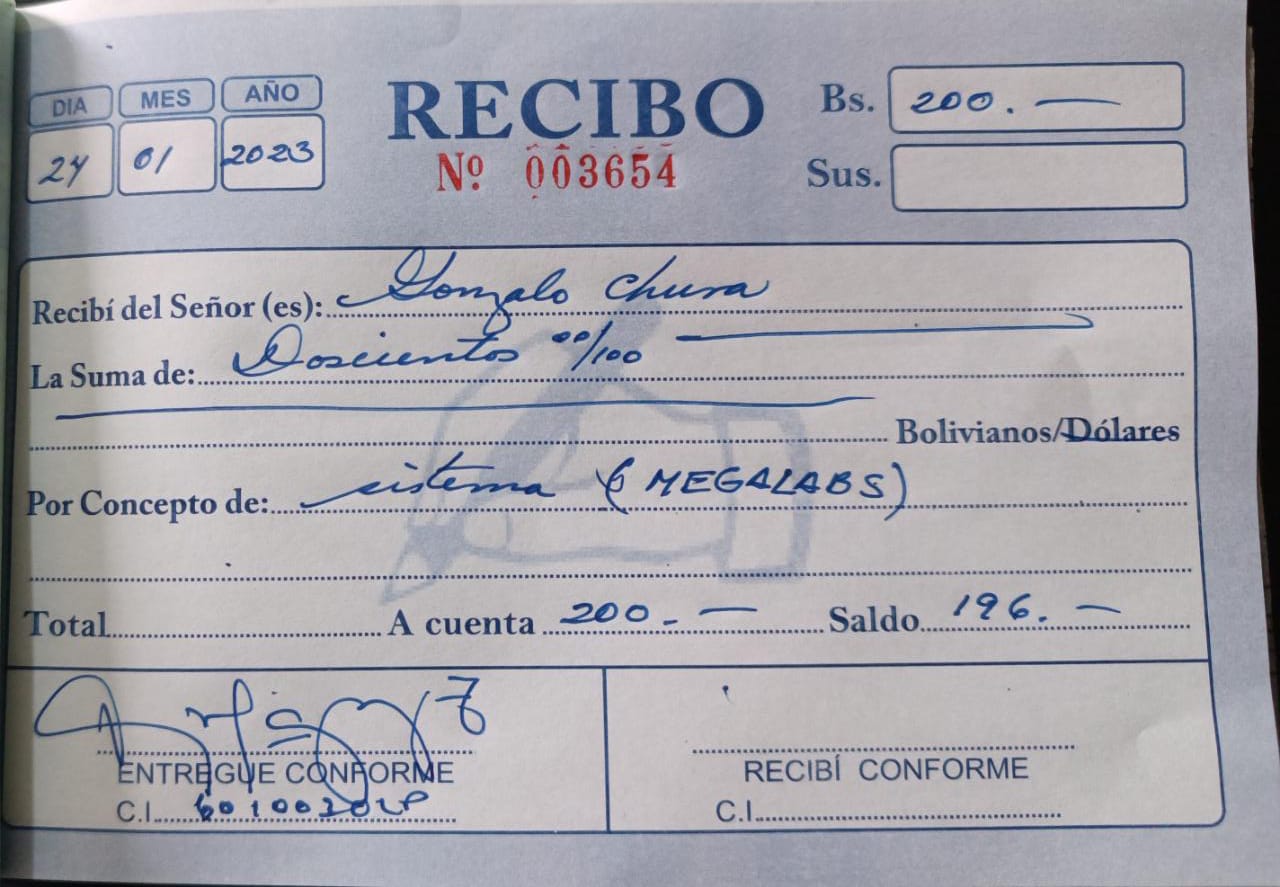 DIA MES AÑO
24 01 2023
RECIBO
Nº 003654
Bs. 200.—
Sus.
Recibí del Señor (es): Gonzalo Chura
La Suma de: Doscientos 00/100
Bolivianos/Dólares
Por Concepto de: sistema (6 MEGALABS)
Total A cuenta 200.— Saldo 196.—
ENTREGUE CONFORME
C.I.
RECIBÍ CONFORME
C.I.